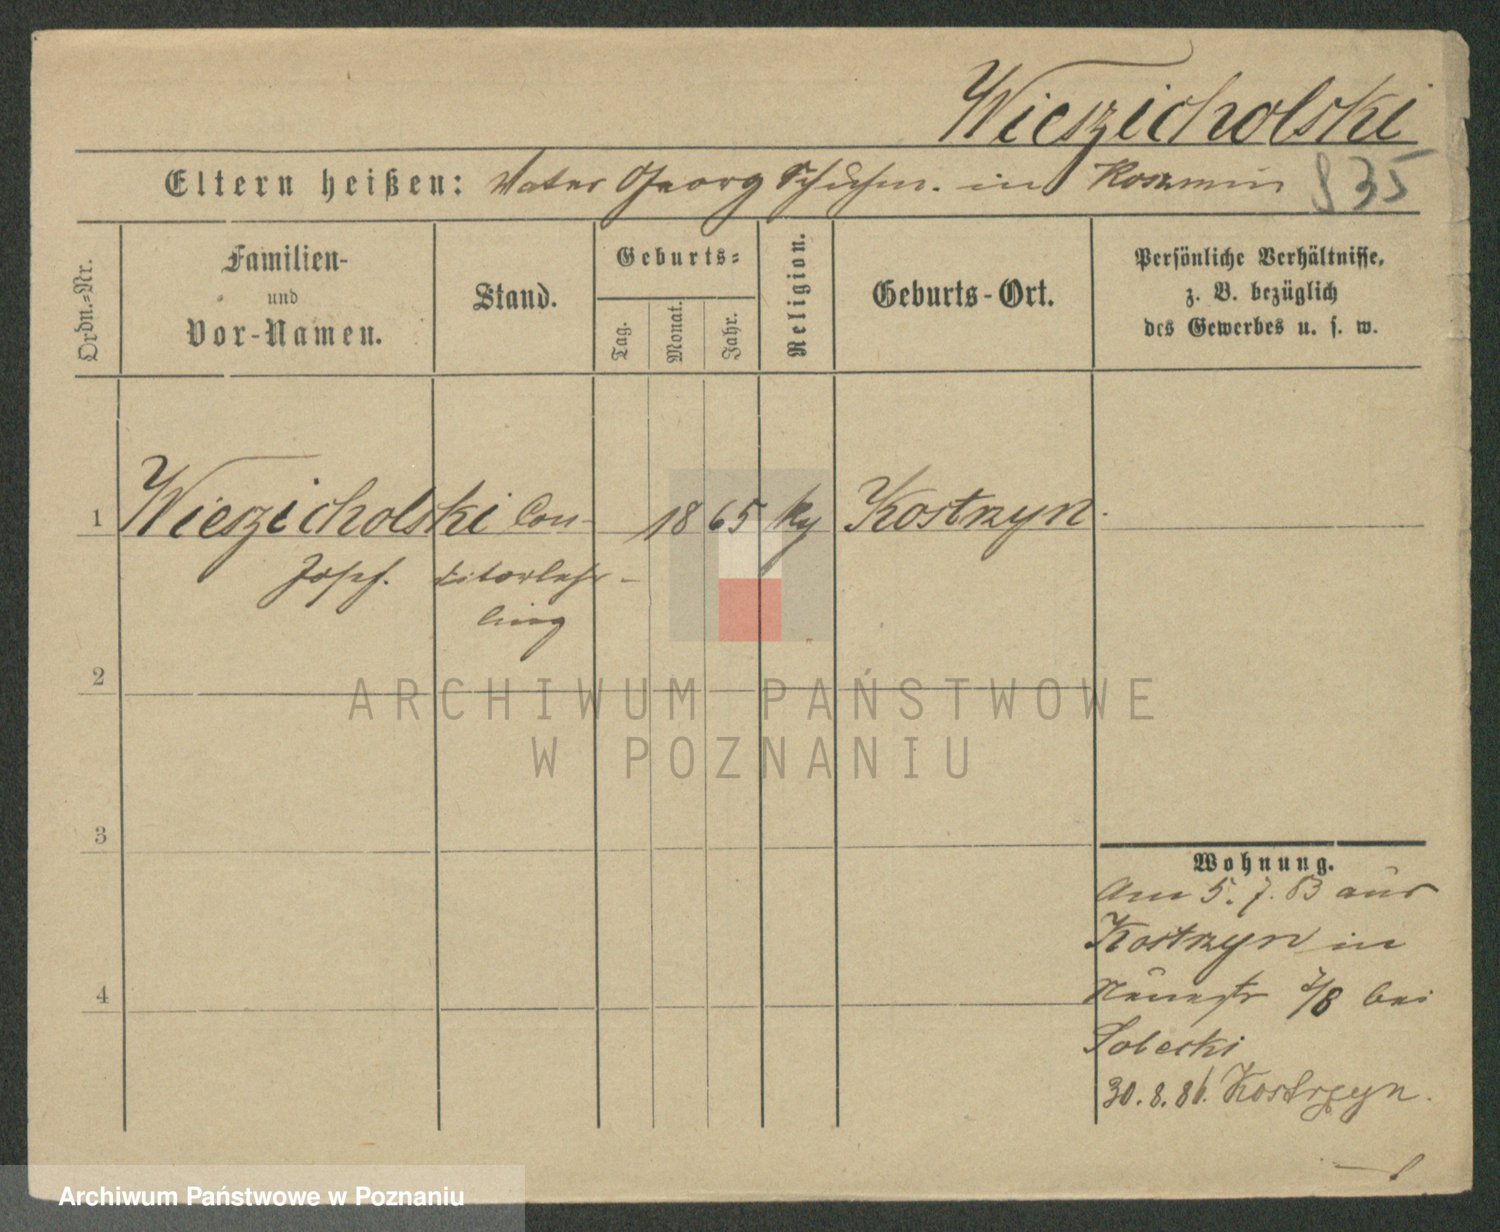 Wieszicholski
Eltern heißen: Vater Georg Schuhm. in Kosmin
835
Ordn.-Nr.
Familien-
und
Vor-Namen.
Stand.
Geburts-
Tag.
Monat.
Jahr.
Religion.
Geburts-Ort.
Persönliche Verhältnisse,
z. B. bezüglich
des Gewerbes u. s. w.
1 Wieszicholski Con- 1865 ky Kostrzyn.
Josef. ditorlehr-
ling
2
ARCHIWUM PAŃSTWOWE
W POZNANIU
3
Wohnung.
Am 5. 7. 83 aus
Kostrzyn in
4
Neuestr 7/8 bei
Sobecki
30. 8. 86. Kostrzyn.
Archiwum Państwowe w Poznaniu